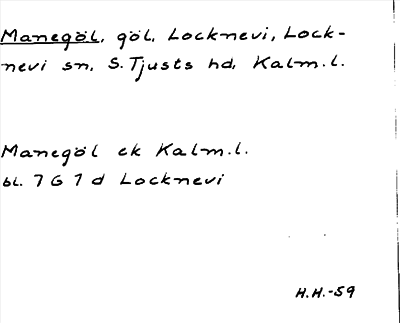 Manegöl, göl, Locknevi, Lock-
nevi sn, S. Tjusts hd, Kalm. l.
Manegöl ek Kalm. l.
bl. 7 G 1 d Locknevi
H.H.-59